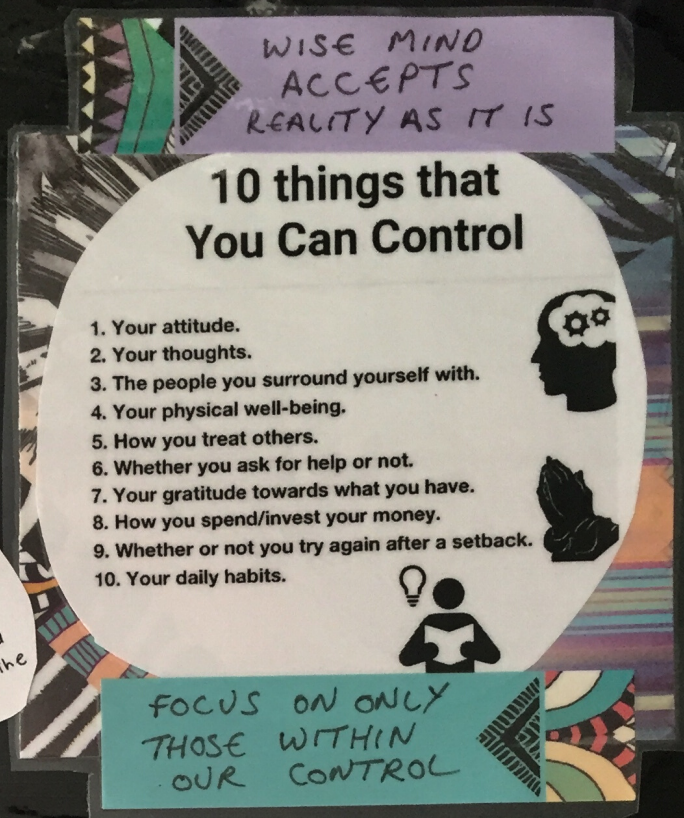 WISE MIND
ACCEPTS
REALITY AS IT IS
10 things that
You Can Control
1. Your attitude.
2. Your thoughts.
3. The people you surround yourself with.
4. Your physical well-being.
5. How you treat others.
6. Whether you ask for help or not.
7. Your gratitude towards what you have.
8. How you spend/invest your money.
9. Whether or not you try again after a setback.
10. Your daily habits.
FOCUS ON ONLY
THOSE WITHIN
OUR CONTROL